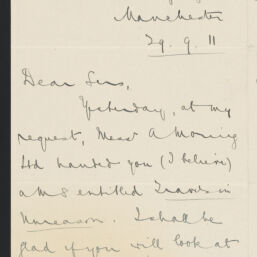 Manchester
29. 9. 11
Dear Sirs,
Yesterday, at my
request, Messrs A Moring
Ltd handed you (I believe)
a MS entitled Travels in
Unreason. I shall be
glad if you will look at